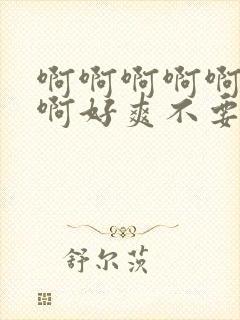 啊啊啊啊啊
啊好爽不要
舒尔茨